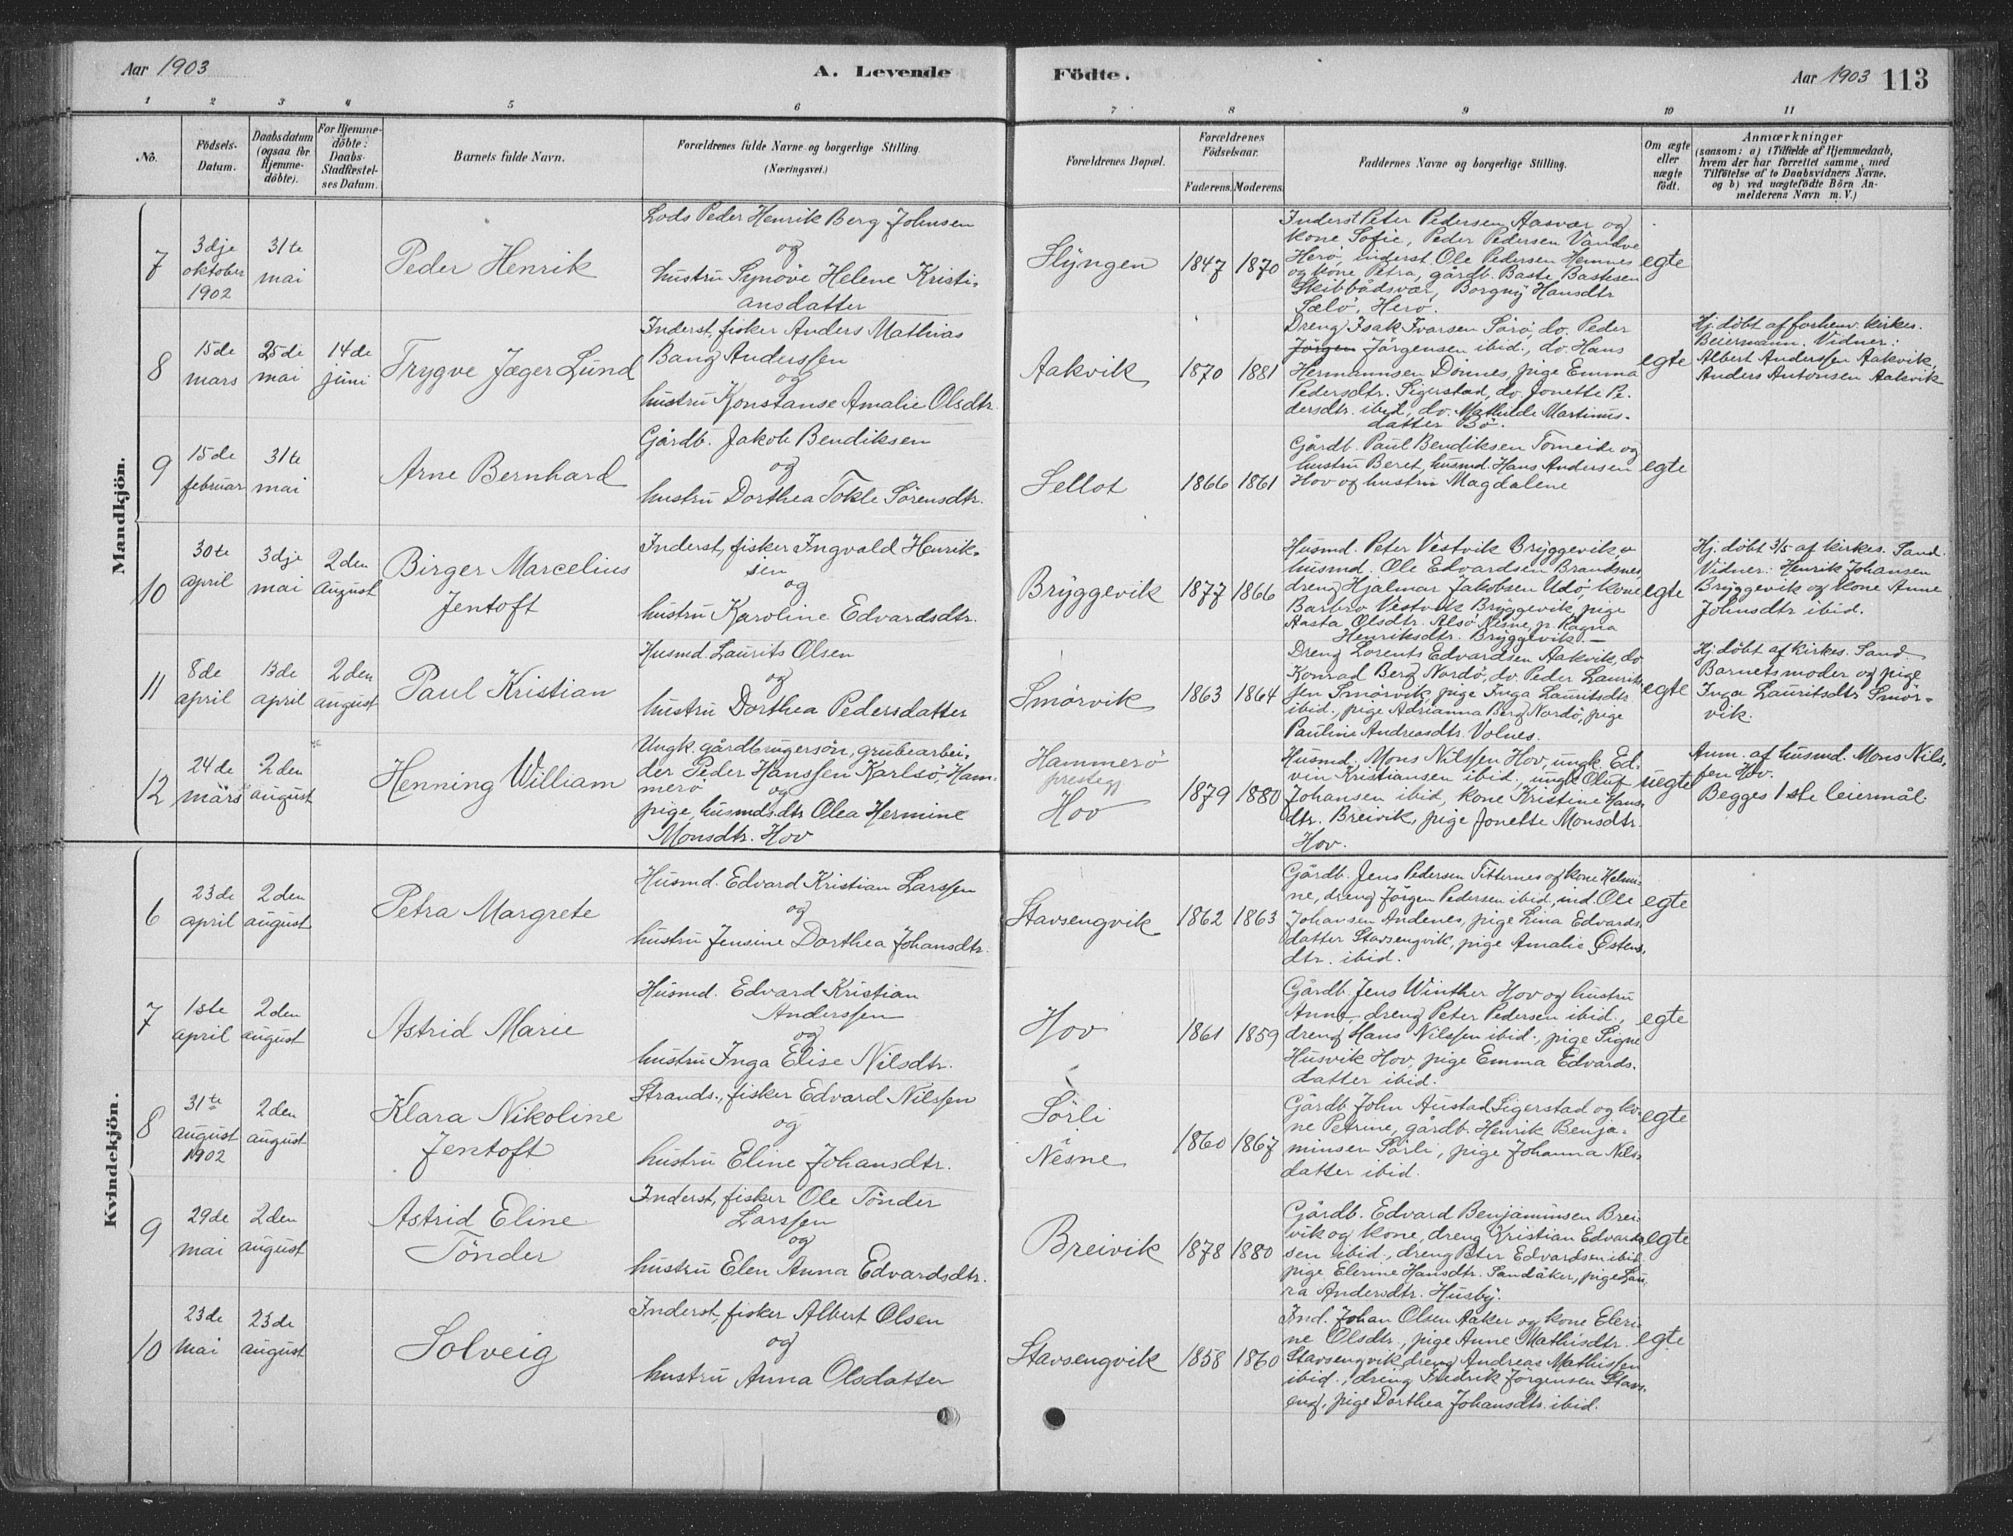 Aar 1903
A. Levende
Födte.
Aar 1903
113
1 2 3 4 5 6 7 8 9 10 11
No.
Födsels-
Datum.
Daabsdatum
(ogsaa for
Hjemme-
döbte).
For Hjemme-
döbte:
Daabs-
Stadfæstel-
ses Datum.
Barnets fulde Navn.
Forældrenes fulde Navne og borgerlige Stilling
(Næringsvei.)
Forældrenes Bopæl.
Forældrenes
Födselsaar.
Faderens. Moderens.
Faddernes Navne og borgerlige Stilling.
Om ægte
eller
uægte
födt.
Anmærkninger
(saasom: a) i Tilfælde af Hjemmedaab,
hvem der har forrettet samme, med
Tilföielse af to Daabsvidners Navne,
og b) ved uægtefödte Börn An-
melderens Navn m. V.)
Mandkjön.
7
3dje
oktober
1902
31te
mai
Peder Henrik
Lods Peder Henrik Berg Johnsen
og
hustru Synöve Helene Kristi-
ansdatter
Slyngen
1847 1870
Inderst Peter Pedersen Aasvær og
kone Sofie, Peder Pedersen Vandve
Herö, inderst Ole Pedersen Hemnes
og kone Petra, gårdb. Baste Bastesen
Skibbådsvær, Borgny Hansdtr
Sælö, Herö.
egte
8
15de
mars
25de
mai
14de
juni
Trygve Jæger Lund
Inderst, fisker Anders Mathias
Bang Anderssen
og
hustru Konstanse Amalie Olsdtr.
Aakvik
1870 1881
Dreng Isak Ivarsen Sörö, do. Peder
Jörgen Jörgensen ibid., do. Hans
Hermannsen Dönnes, pige Emma
Pedersdtr. Sigerstad, do. Jonette Pe-
dersdtr. ibid, do. Mathilde Martinus-
datter Bö.
egte
Hj. døbt af forhenv. kirkes.
Beiermann. Vidner:
Albert Anderssen Aakvik,
Anders Antonsen Aakvik
9
15de
februar
31te
mai
Arne Bernhard
Gårdb. Jakob Bendiksen
og
hustru Dorthea Tokle Sörensdtr.
Sellot
1866 1861
Gårdb. Paul Bendiksen Tomeide og
hustru Beret, husmd. Hans Andersen
Hov og hustru Magdalene
egte
10
30te
april
3dje
mai
2den
august
Birger Marcelius
Jentoft
Inderst, fisker Ingvald Henrik-
sen
og
hustru Karoline Edvardsdtr.
Bryggevik
1877 1866
Husmd. Peter Vestvik Bryggevik,
husmd. Ole Edvardsen Brandsnes,
dreng Hjalmar Jakobsen Udö, kone
Barbro Vestvik Bryggevik, pige
Aasta Olsdtr. Alsö Nesne, p. Ragna
Henriksdtr. Bryggevik.
egte
Hj. døbt 3/5 af kirkes. Sand.
Vidner: Henrik Johansen
Bryggevik og kone Anne
Johnsdtr ibid.
11
8de
april
13de
april
2den
august
Paul Kristian
Husmd. Laurits Olsen
og
hustru Dorthea Pedersdatter
Smörvik
1863 1864
Dreng Lorents Edvardsen Aakvik, do
Konrad Berg Nordö, do. Peder Laurit-
sen Smörvik, pige Inga Lauritsdtr
ibid., pige Adrianna Berg Nordö, pige
Pauline Andreasdtr. Volnes.
egte
Hj. døbt af kirkes. Sand
Barnets moder og pige
Inga Lauritsdtr Smör-
vik.
12
24de
märs
2den
august
Henning William
Ungk. gårdbrugersön, grubearbei-
der Peder Hanssen Karlsö, Ham-
merö og
pige, husmdsdtr Olea Hermine
Monsdtr. Hov
Hammerö
presteg
Hov
1879 1880
Husmd. Mons Nilssen Hov, ungk. Ed-
vin Kristiansen ibid., ungk. Oluf
Johansen ibid, kone Kristine Hans-
dtr. Breivik, pige Jonette Monsdtr.
Hov.
uegte
Anm. af husmd. Mons Nils-
sen Hov.
Begges 1ste leiermål.
Kvindekjön.
6
23de
april
2den
august
Petra Margrete
Husmd. Edvard Kristian Larssen
og
hustru Jensine Dorthea Johansdtr.
Stavsengvik
1862 1863
Gårdb. Jens Pedersen Titternes og kone Helmi-
ne, dreng Jörgen Pedersen ibid, ind. Ole
Johansen Andenes, pige Lina Edvards-
datter Stavsengvik, pige Amalie Östens-
dtr. ibid.
egte
7
1ste
april
2den
august
Astrid Marie
Husmd. Edvard Kristian
Anderssen
og
hustru Inga Elise Nilsdtr.
Hov
1861 1859
Gårdb. Jens Winther Hov og hustru
Anne, dreng Peter Pedersen ibid.,
dreng Hans Nilssen ibid., pige Signe
Husvik Hov, pige Emma Edvards-
datter ibid.
egte
8
31te
august
1902
2den
august
Klara Nikoline
Jentoft
Strands., fisker Edvard Nilssen
og
hustru Eline Johansdtr.
Sörli
Nesne
1860 1867
Gårdb. John Austad Sigerstad og ko-
ne Petrine, gårdb. Henrik Benja-
minsen Sörli, pige Johanna Nils-
datter ibid.
egte
9
29de
mai
2den
august
Astrid Eline
Tönder
Inderst, fisker Ole Tönder
Larssen
og
hustru Elen Anna Edvardsdtr.
Breivik
1878 1880
Gårdb. Edvard Benjaminsen Brei-
vik og kone, dreng Kristian Edvard-
sen ibid., dreng Peter Edvardsen ibid
pige Elerine Hansdtr. Sandåker, pige Lau-
ra Andersdtr. Husby.
egte
10
23de
mai
23de
august
Solveig
Inderst, fisker Albert Olsen
og
hustru Anna Olsdatter
Stavsengvik
1858 1860
Ind. Johan Olsen Aaker og kone Eleri-
ne Olsdtr., pige Anne Mathisdtr.
Stavsengvik, dreng Andreas Mathissen
ibid., dreng Fredrik Jörgensen Stavs-
eng, pige Dorthea Johansdtr. ibid.
egte